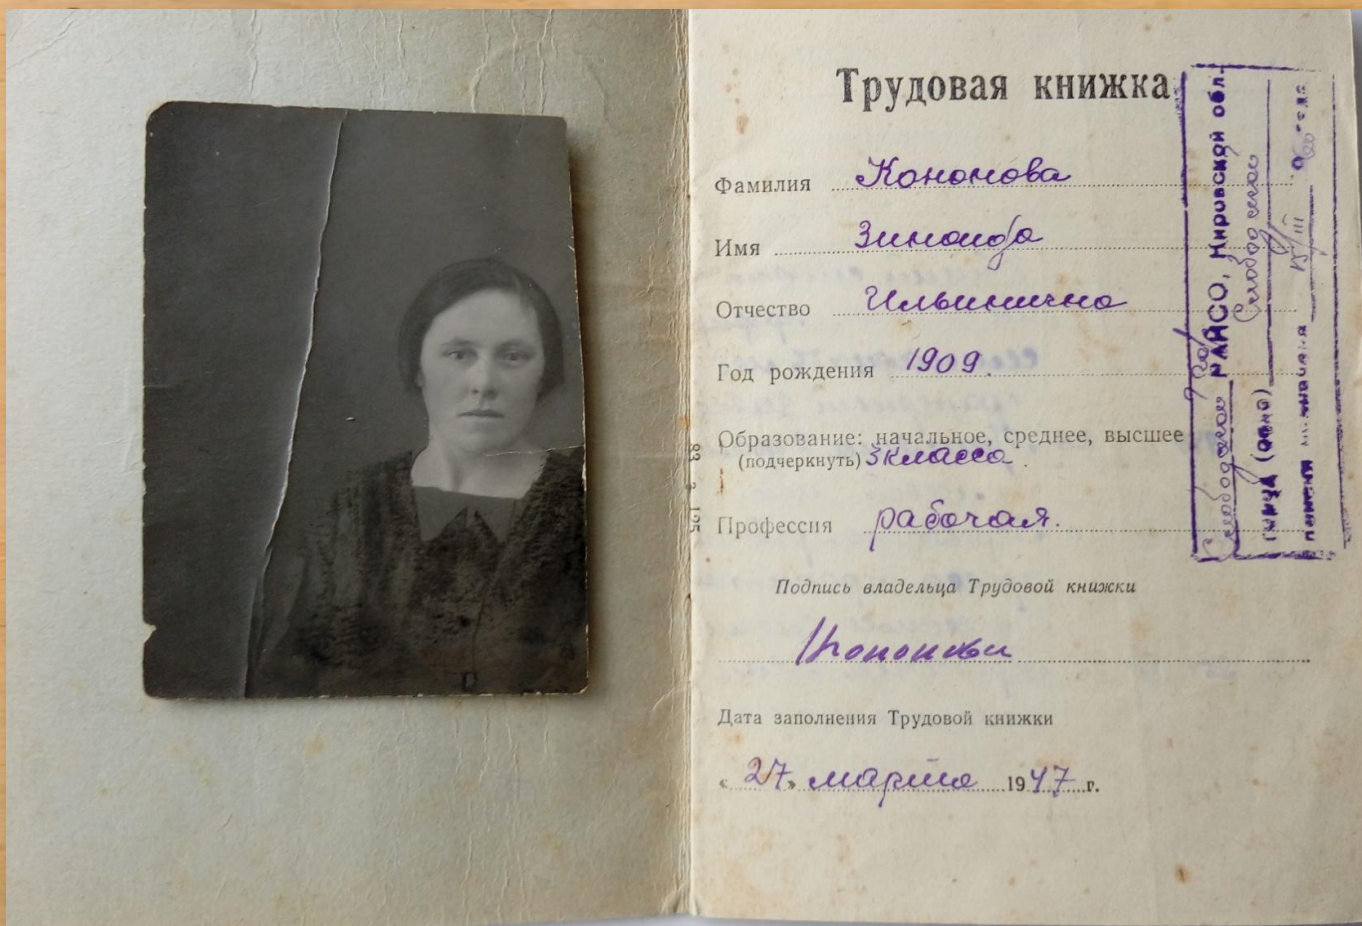 Трудовая книжка
Фамилия Кононова
Имя Зинаида
Отчество Ильинична
Год рождения 1909.
Образование: начальное, среднее, высшее
(подчеркнуть) 3 класса.
Профессия рабочая.
Подпись владельца Трудовой книжки
Кононова
Дата заполнения Трудовой книжки
«27» марта 1947 г.
Слободское РАЙСО, Кировской обл.
Слободское